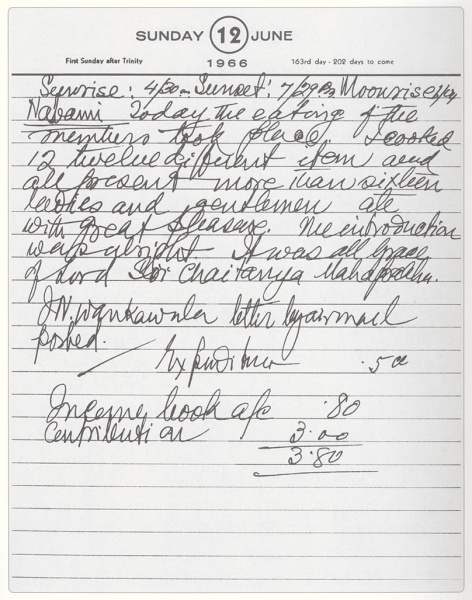 SUNDAY 12 JUNE
First Sunday after Trinity 1966 163rd day - 202 days to come
Sunrise: 4/30 Sunset: 7/29 Moonrise
Nabami Today the eating of the
members took place. I cooked
12 twelve different item and
all present more than sixteen
ladies and gentlemen ate
with great pleasure. The introduction
was alright It was all grace
of Lord Sri Chaitanya Mahaprabhu.
letter by airmail
posted.
Expenditure .50
Income book a/c .80
Contribution 3.00
3.80